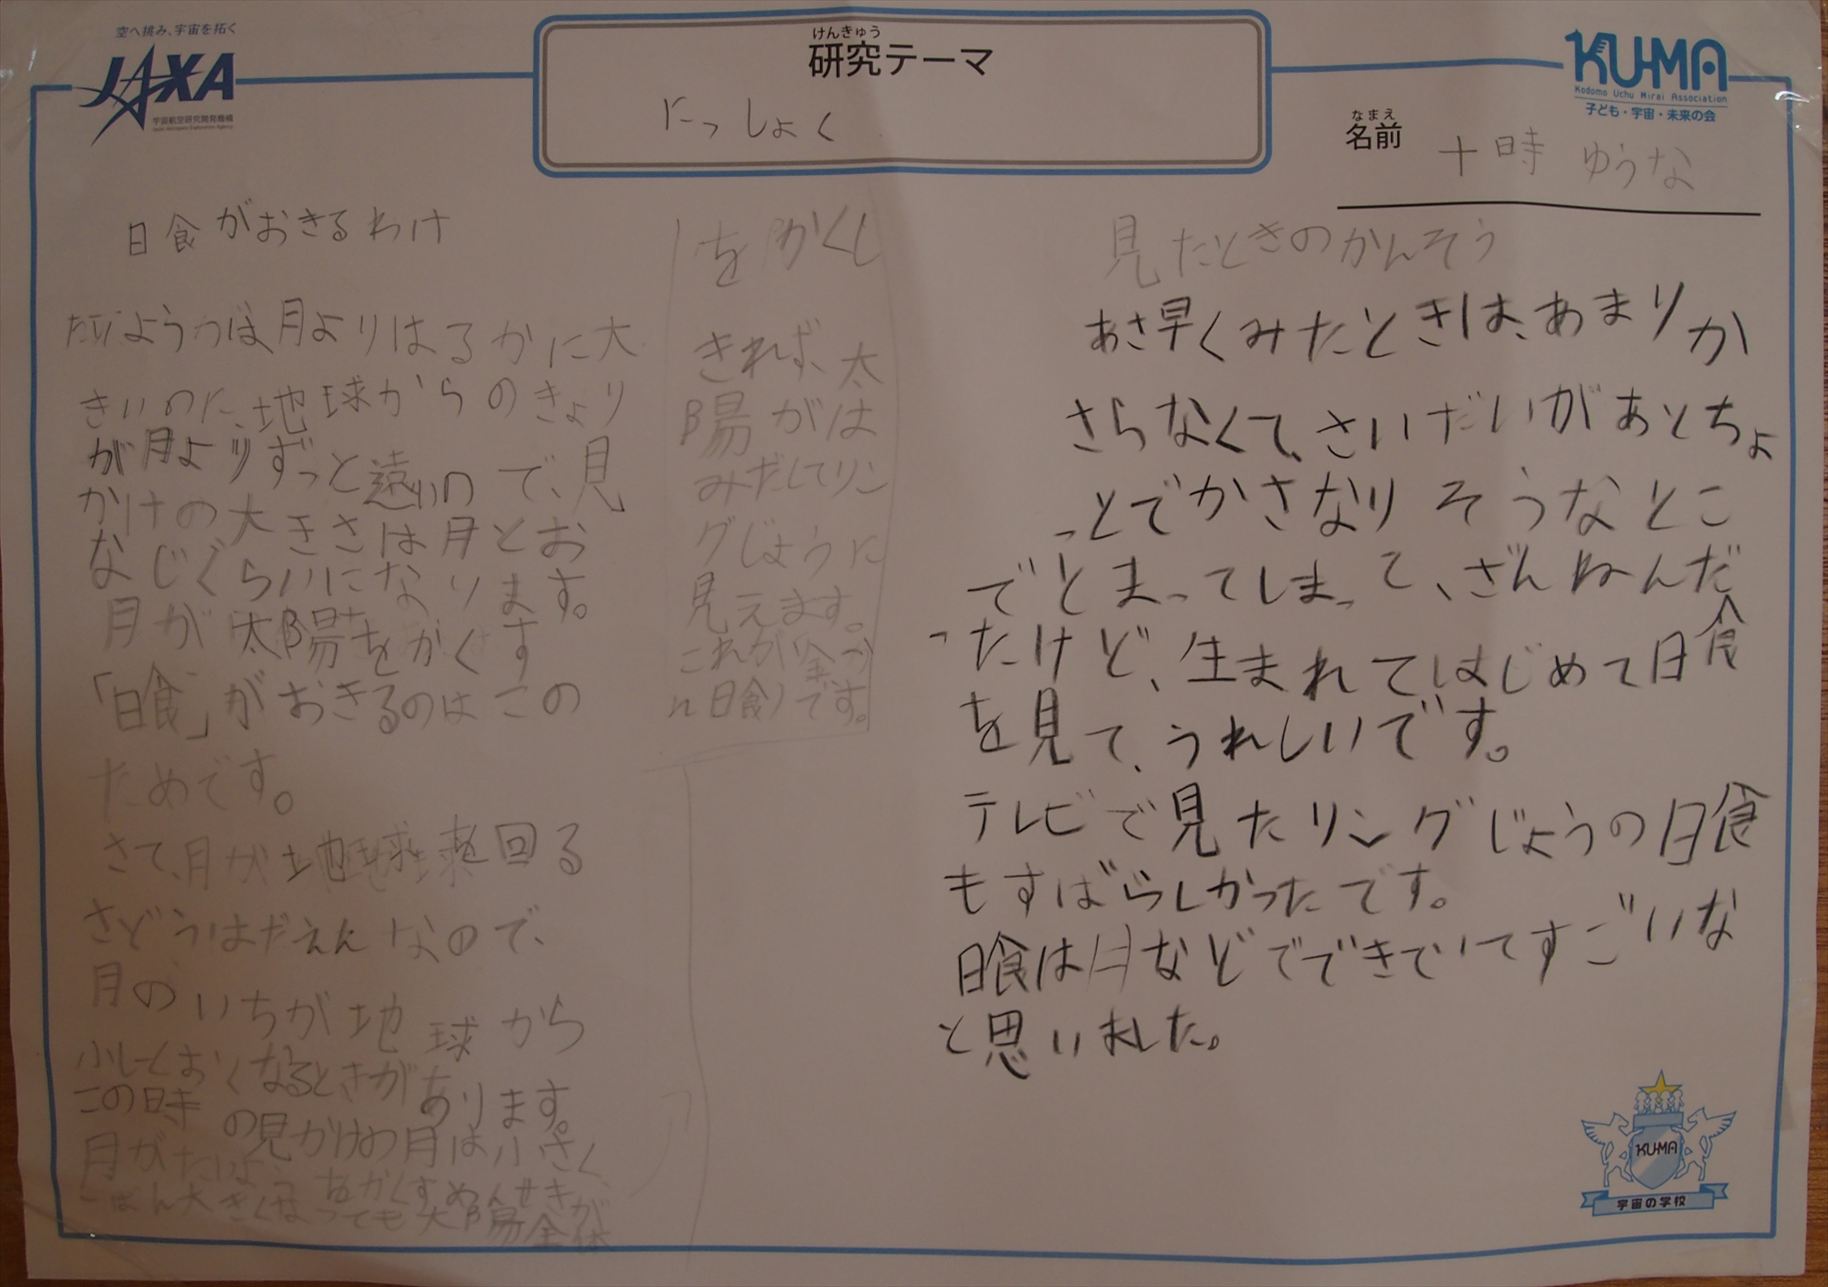 空へ挑み、宇宙を拓く
JAXA
宇宙航空研究開発機構
Japan Aerospace Exploration Agency
けんきゅう
研究テーマ
にっしょく
KU-MA
Kodomo Uchu Mirai Association
子ども・宇宙・未来の会
なまえ
名前
十時 ゆうな
日食がおきるわけ
たいようのは月よりはるかに大
きいのに、地球からのきょり
が月よりずっと遠いので、見
かけの大きさは月とお
なじぐらいになります。
月が太陽をかくす
「日食」がおきるのはこの
ためです。
さて、月が地球を回る
きどうはだえんなので、
月のいちが地球から
少しとおくなるときがあります。
この時の見かけの月は小さく、
月がたいようをかくすめんせきが
いちばん大きくなっても太陽全体
をかくし
きれず、太
陽がは
みだしてリン
グじょうに
見えます。
これが(金かん
日食)です。
見たときのかんそう
あさ早くみたときは、あまりか
さらなくて、さいだいがあとちょ
っとでかさなりそうなとこ
でとまってしまって、ざんねんだ
ったけど、生まれてはじめて日食
を見て、うれしいです。
テレビで見たリングじょうの日食
もすばらしかったです。
日食は月などでできていてすごいな
と思いました。
KU-MA
宇宙の学校